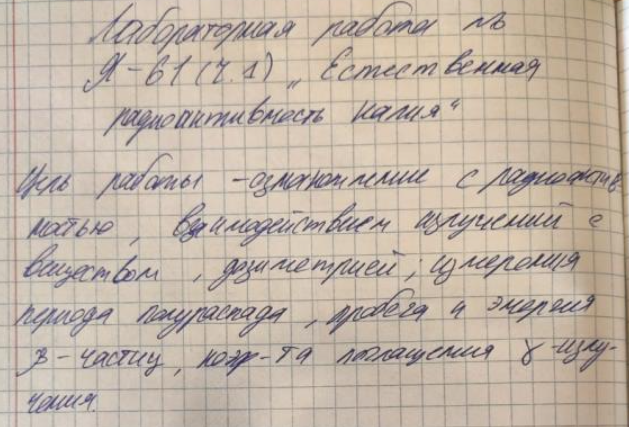 Лабораторная работа №
Я-61 (ч.1) „Естественная
радиоактивность калия“
Цель работы - ознакомление с радиоактив-
ностью, взаимодействием излучений с
веществом, дозиметрией; измерения
периода полураспада, пробега и энергия
β-частиц, коэф-та поглощения γ-излу-
чения.